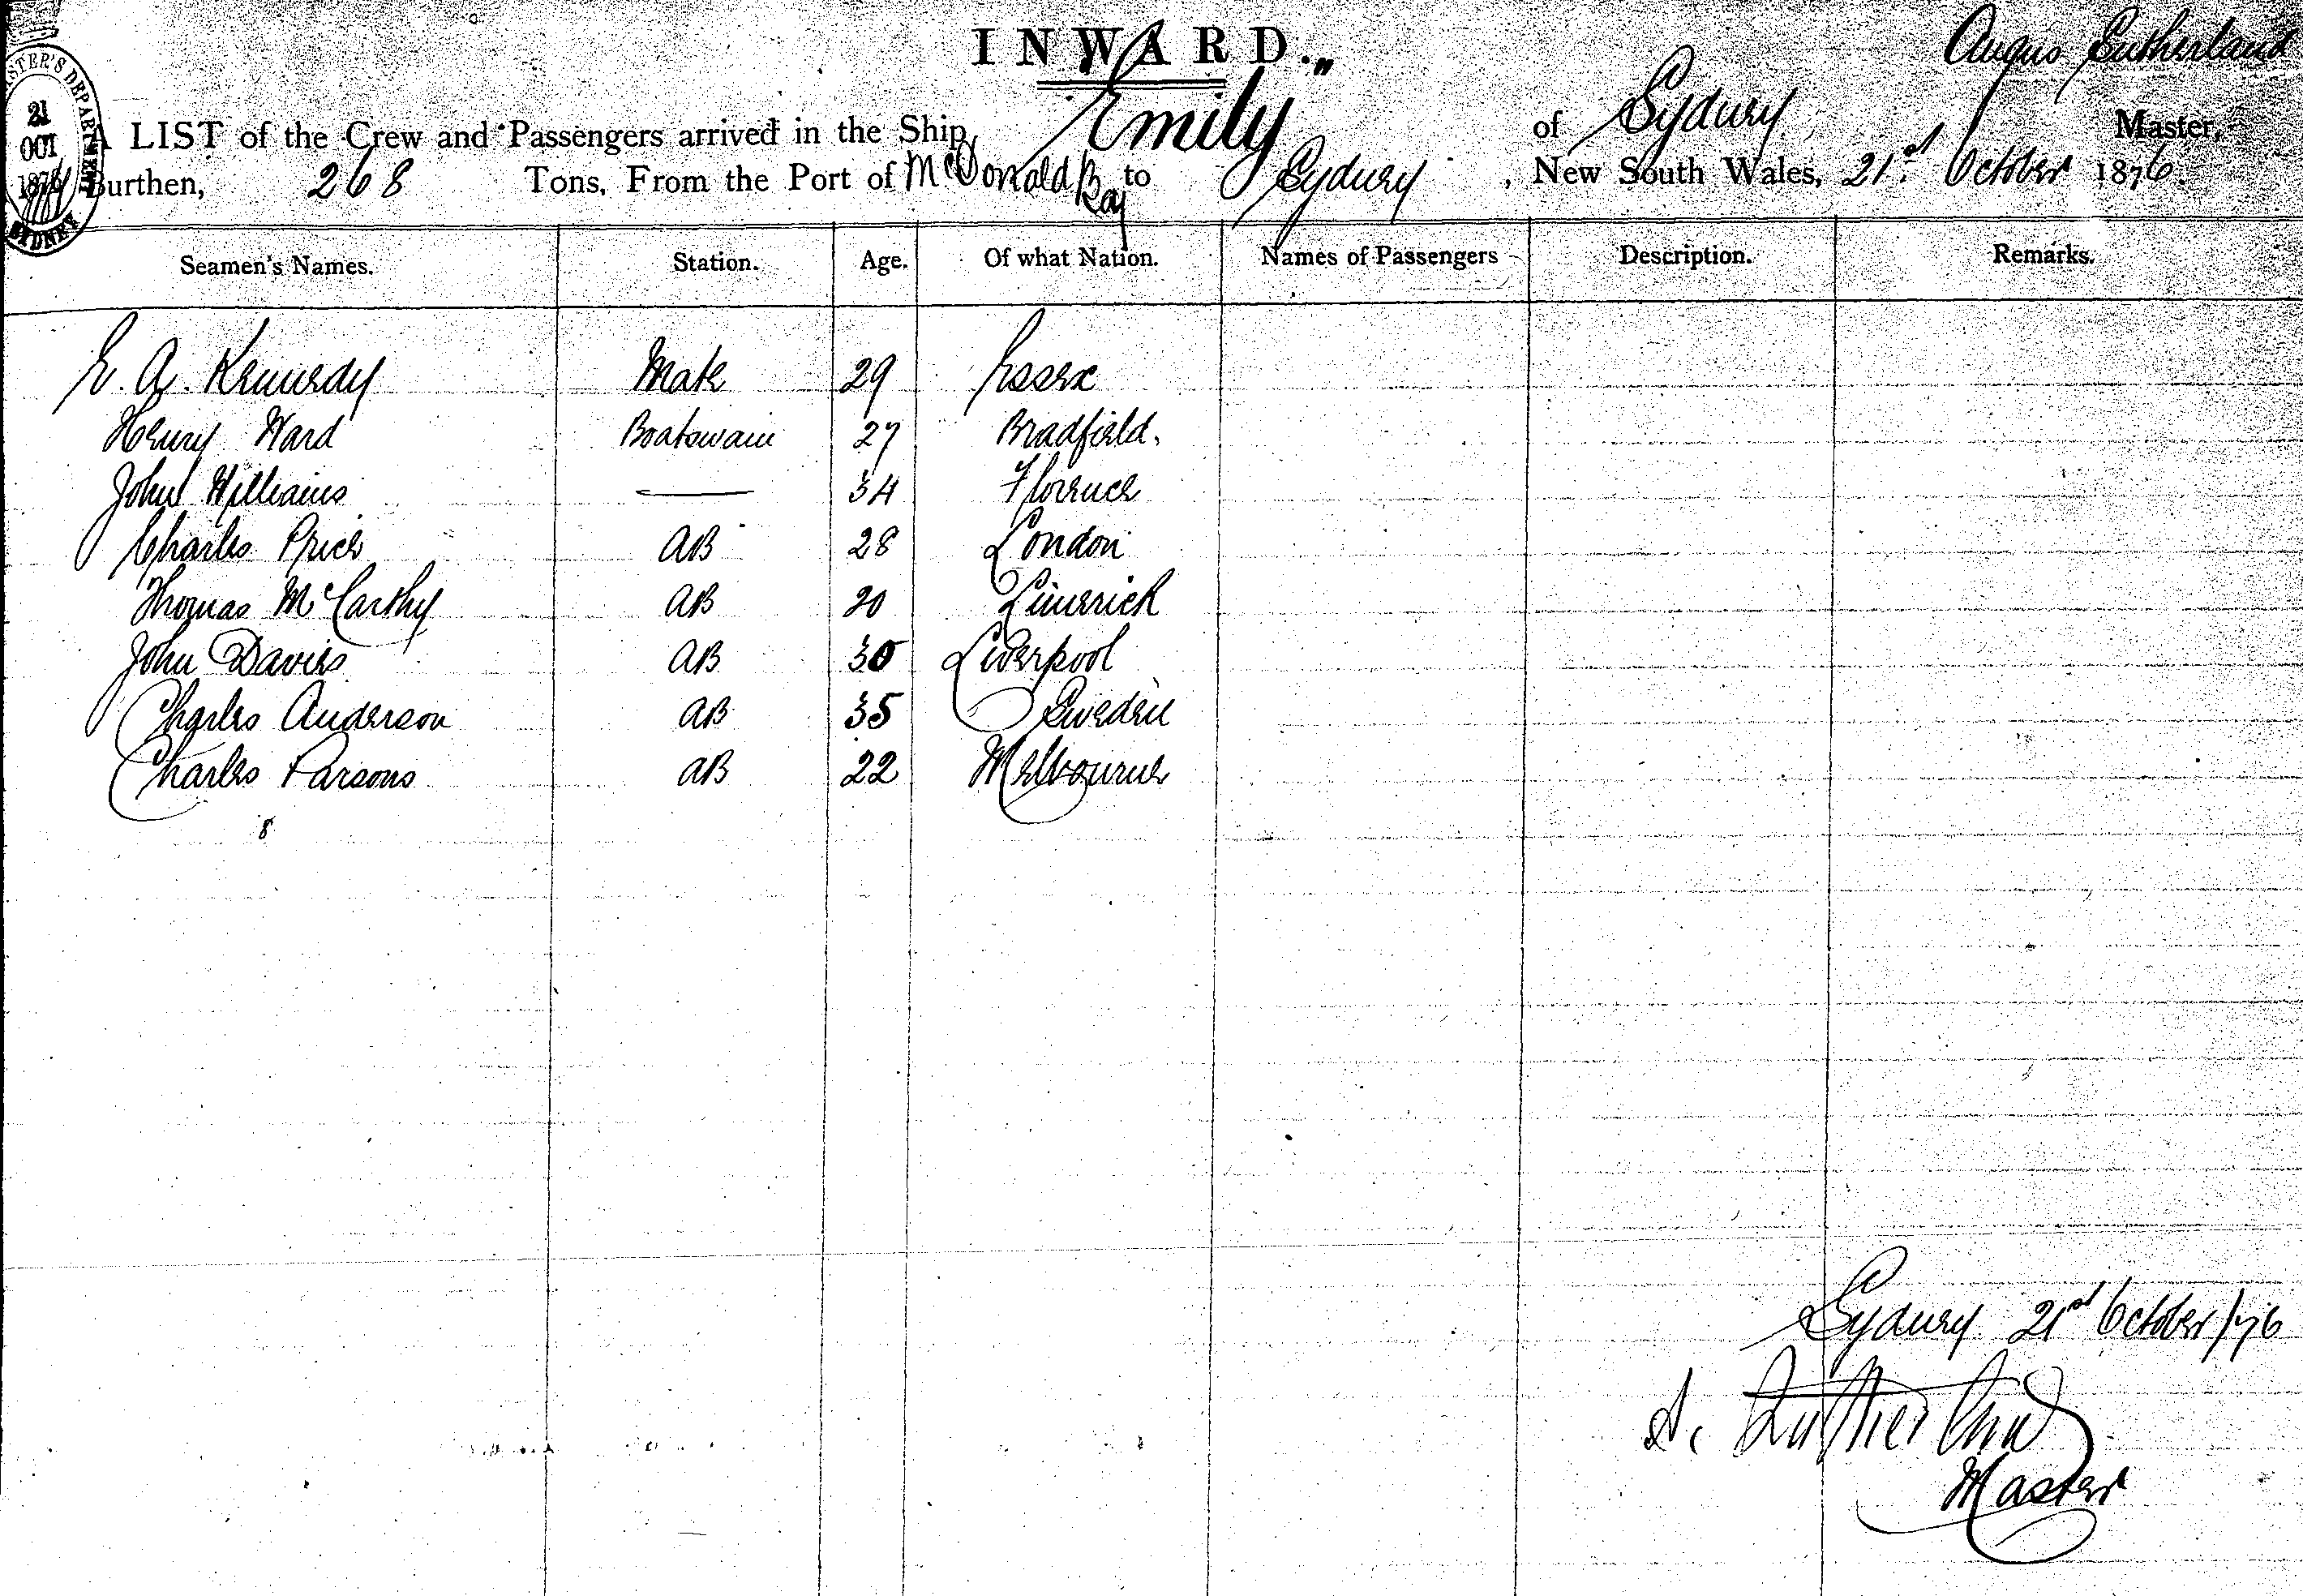 INWARD.
Angus Sutherland
A LIST of the Crew and Passengers arrived in the Ship "Emily" of Sydney Master,
Burthen, 268 Tons, From the Port of McDonald Bay to Sydney, New South Wales, 21st October 1876.
21
OCT
1876
SYDNEY
Seamen's Names. Station. Age. Of what Nation. Names of Passengers Description. Remarks.
E. A. Kennedy Mate 29 Essex
Henry Ward Boatswain 27 Bradfield.
John Williams — 34 Florence
Charles Price AB 28 London
Thomas McCarthy AB 20 Limerick
John Davies AB 30 Liverpool
Charles Anderson AB 35 Sweden
Charles Parsons AB 22 Melbourne
8
Sydney 21st October/76
A. Sutherland
Master